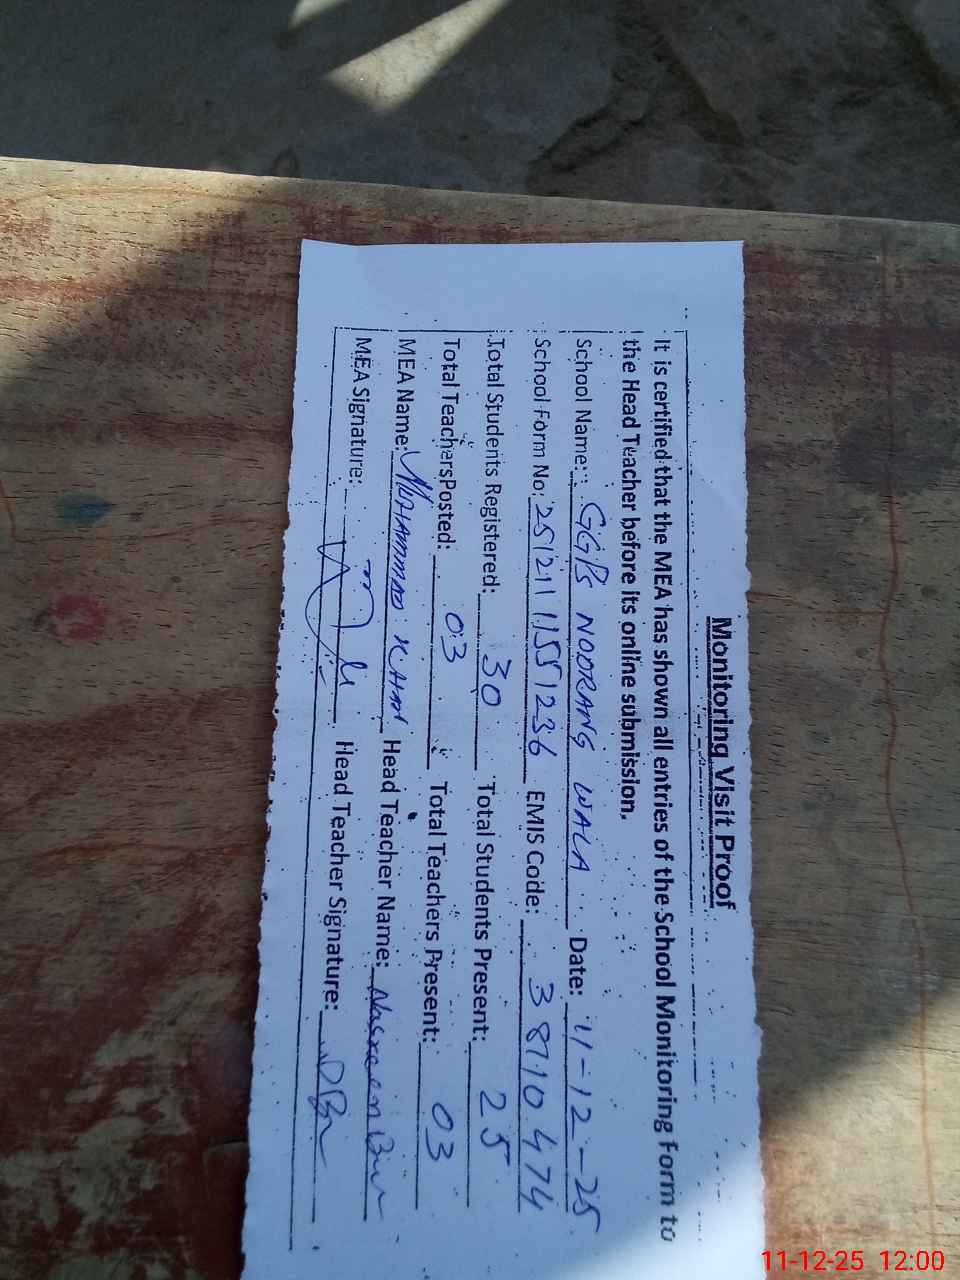 Monitoring Visit Proof
It is certified that the MEA has shown all entries of the School Monitoring Form to
the Head Teacher before its online submission.
School Name: GGPS NODRANG WALA Date: 11-12-25
School Form No: 2512111551236 EMIS Code: 38710474
Total Students Registered: 30 Total Students Present: 25
Total Teachers Posted: 03 Total Teachers Present: 03
MEA Name: MUHAMMAD KHAN Head Teacher Name: Nasreen
MEA Signature: Head Teacher Signature:
11-12-25 12:00